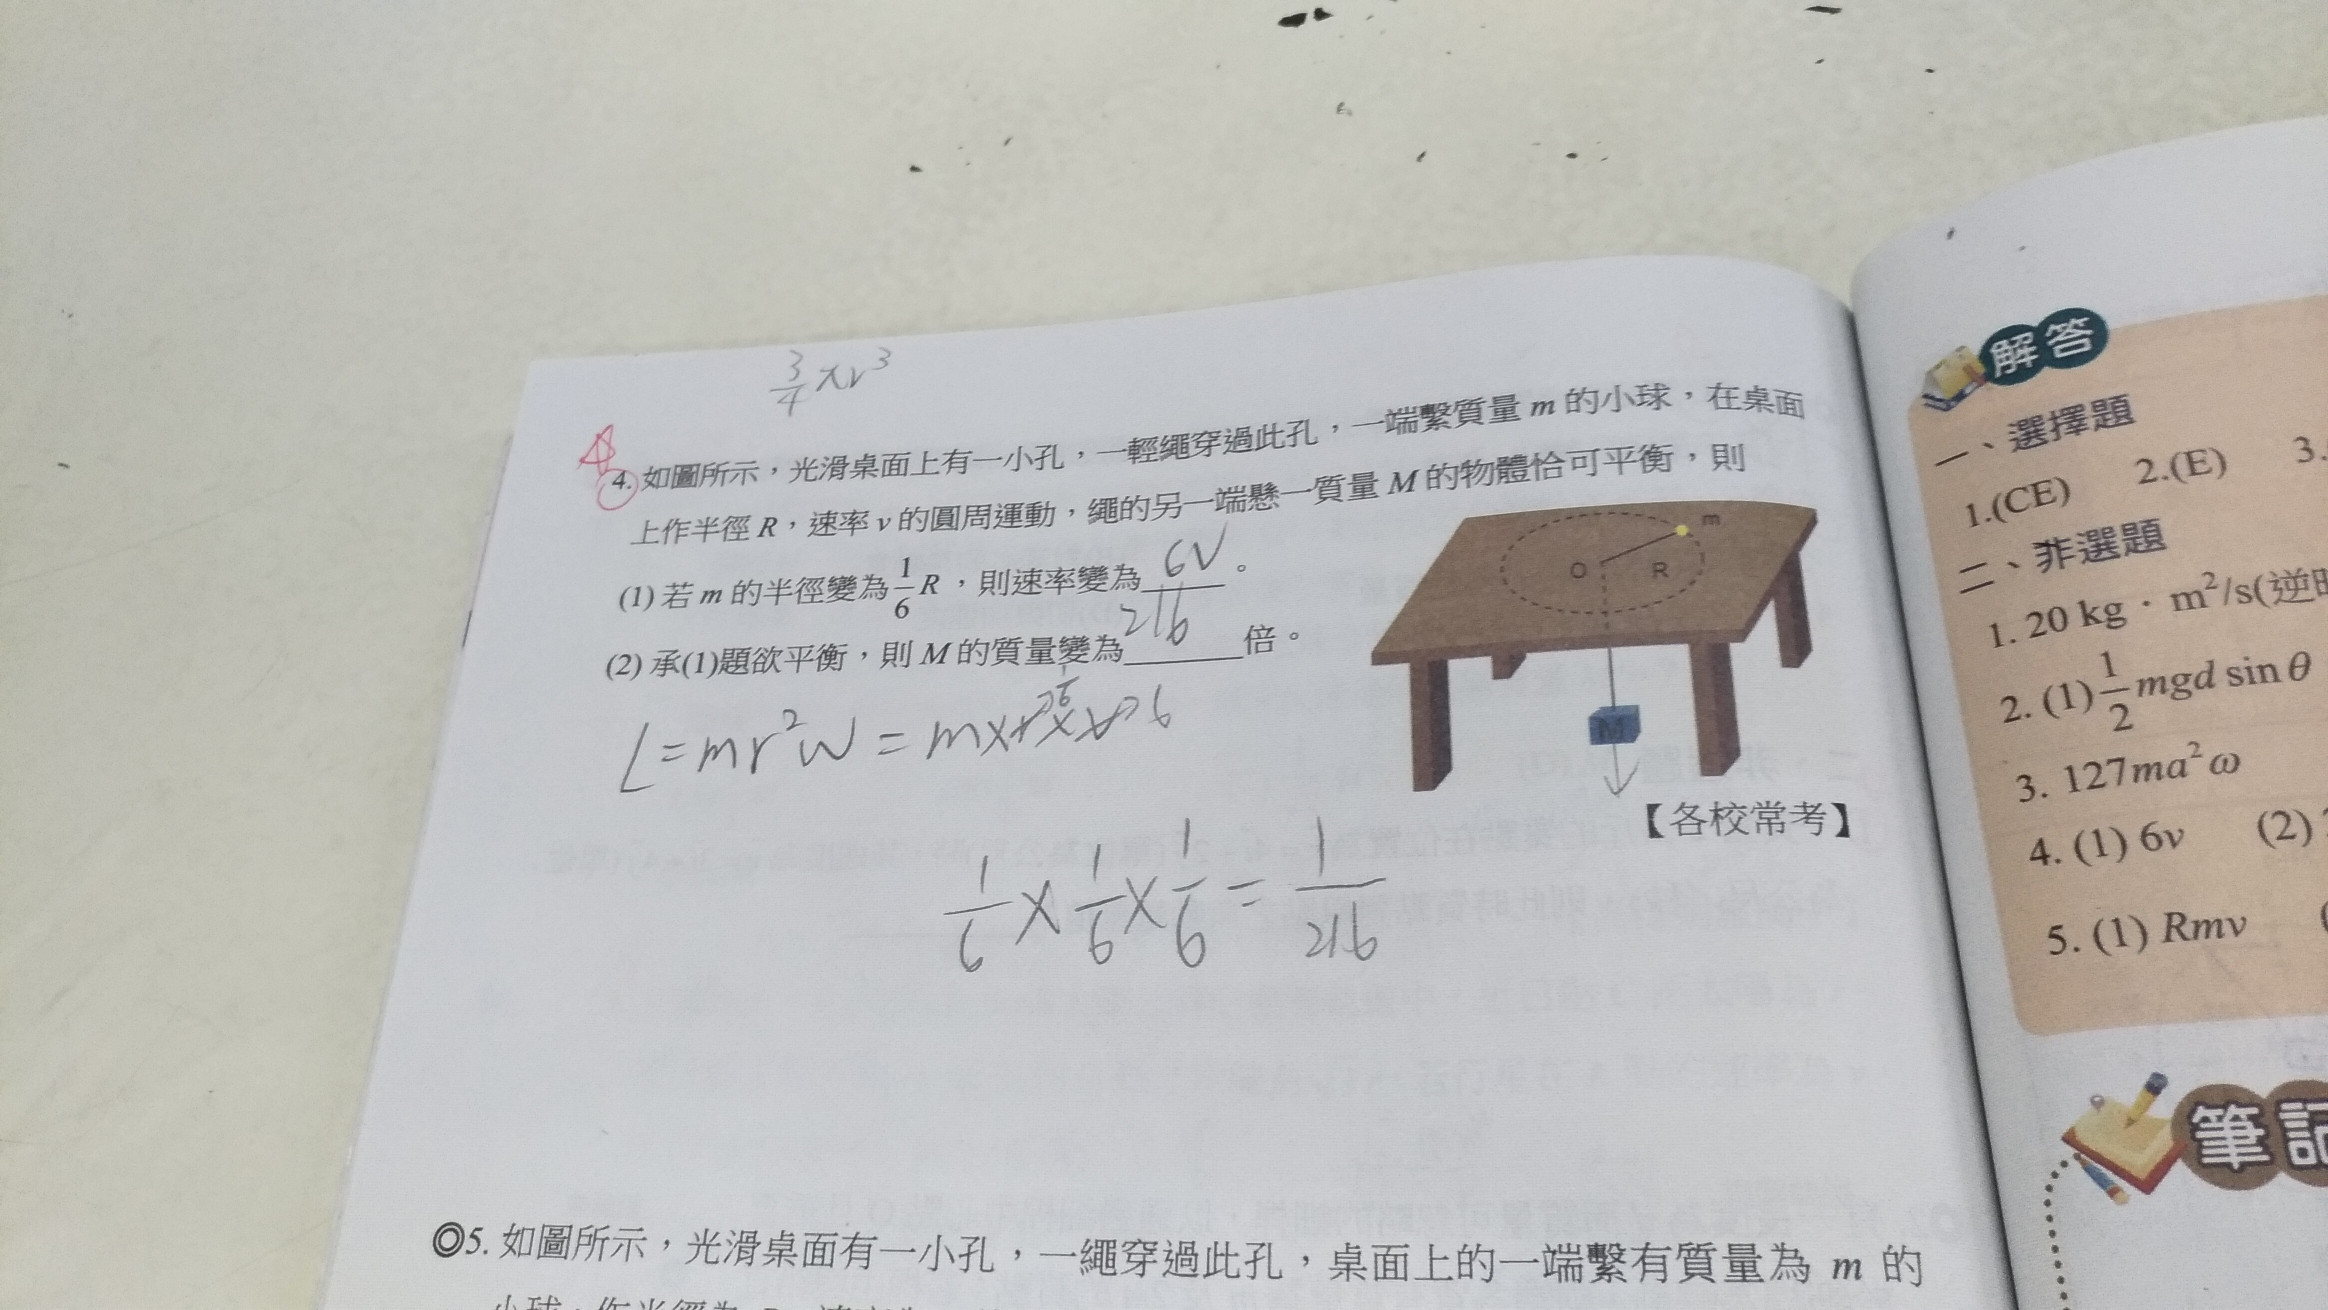 3/4 πr³
4. 如圖所示，光滑桌面上有一小孔，一輕繩穿過此孔，一端繫質量 m 的小球，在桌面
上作半徑 R，速率 v 的圓周運動，繩的另一端懸一質量 M 的物體恰可平衡，則
(1) 若 m 的半徑變為 1/6 R，則速率變為 6V 。
(2) 承(1)題欲平衡，則 M 的質量變為 216 倍。
m
O
R
M
L=mr²W=
1/6 × 1/6 × 1/6 = 1/216
【各校常考】
◎5. 如圖所示，光滑桌面有一小孔，一繩穿過此孔，桌面上的一端繫有質量為 m 的
解答
一、選擇題
1.(CE) 2.(E) 3.
二、非選題
1. 20 kg · m²/s(逆時
2. (1) 1/2 mgd sin θ
3. 127ma²ω
4. (1) 6v (2)
5. (1) Rmv
筆記